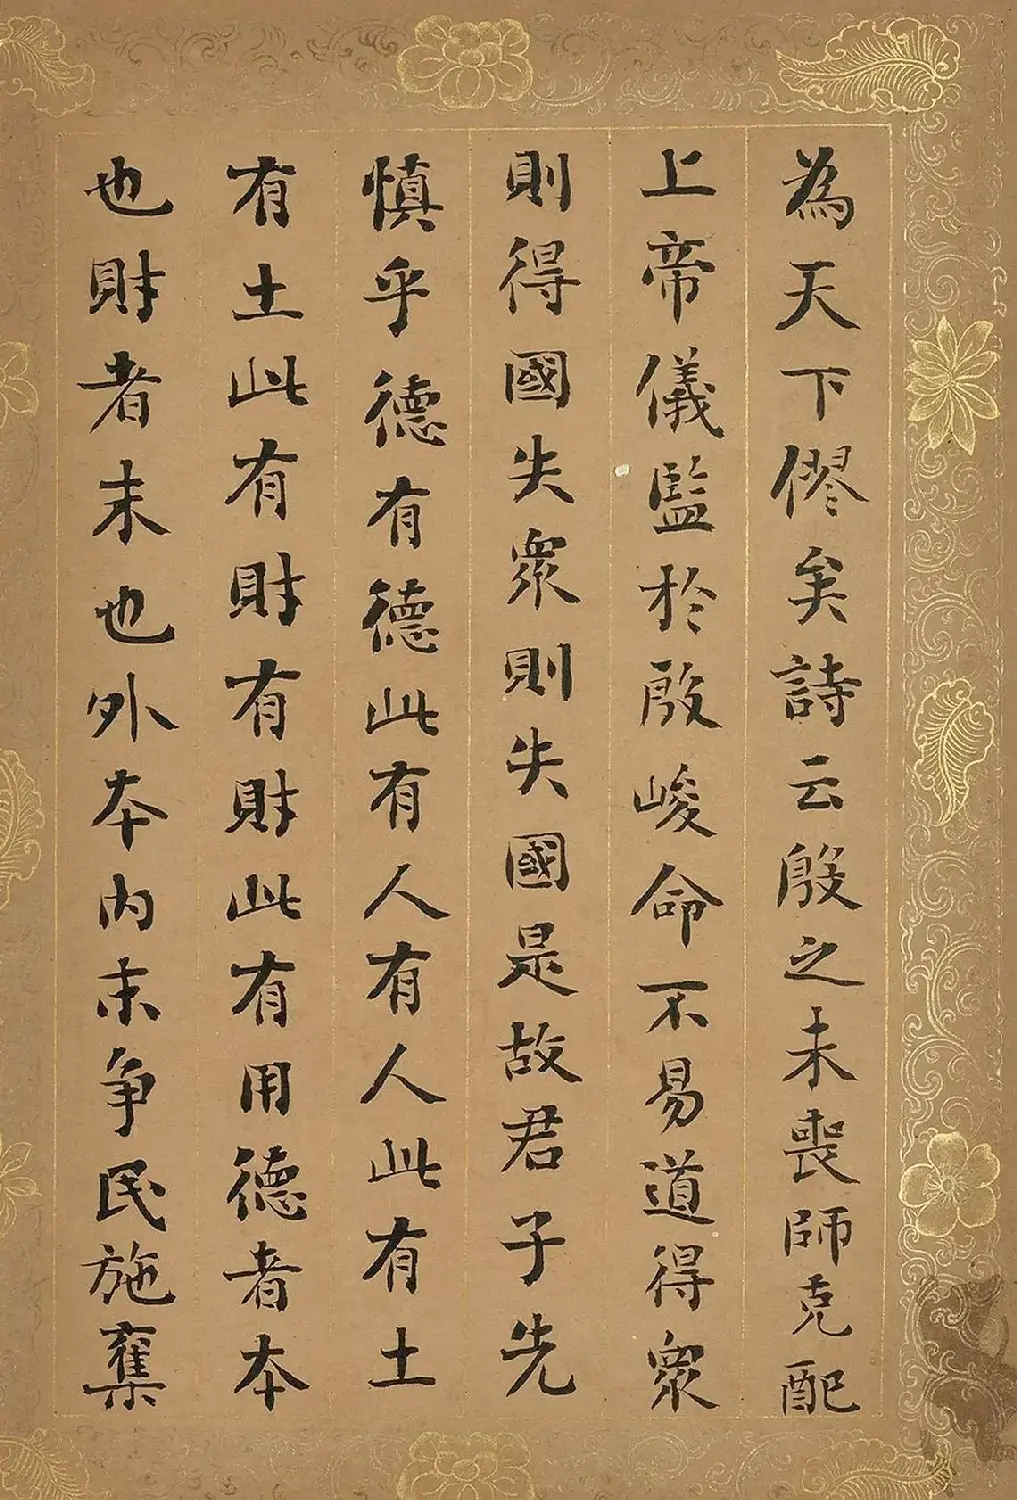 為天下僇矣詩云殷之未喪師克配
上帝儀監於殷峻命不易道得眾
則得國失眾則失國是故君子先
慎乎德有德此有人有人此有土
有土此有財有財此有用德者本
也財者末也外本內末争民施奪